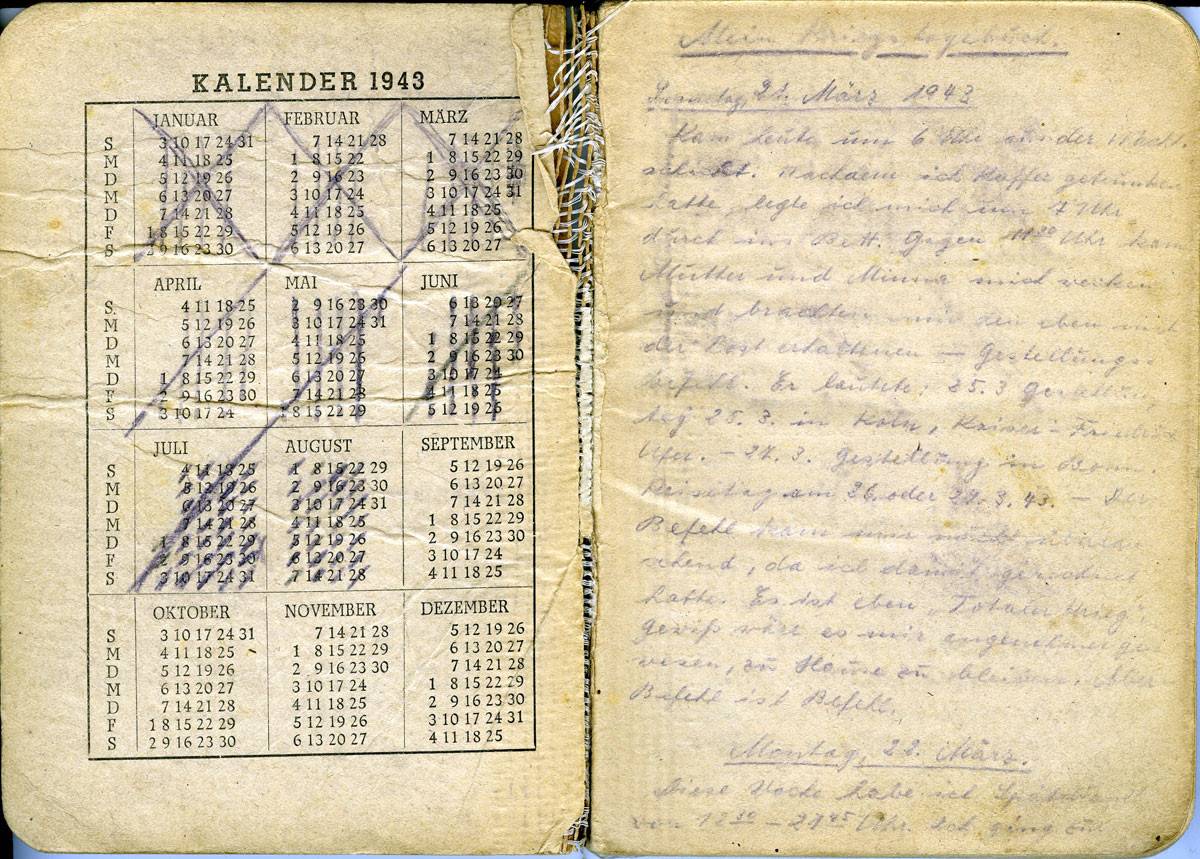 KALENDER 1943
JANUAR FEBRUAR MÄRZ
S. 3 10 17 24 31 7 14 21 28 7 14 21 28
M 4 11 18 25 1 8 15 22 1 8 15 22 29
D 5 12 19 26 2 9 16 23 2 9 16 23 30
M 6 13 20 27 3 10 17 24 3 10 17 24 31
D 7 14 21 28 4 11 18 25 4 11 18 25
F 1 8 15 22 29 5 12 19 26 5 12 19 26
S 2 9 16 23 30 6 13 20 27 6 13 20 27
APRIL MAI JUNI
S. 4 11 18 25 2 9 16 23 30 6 13 20 27
M 5 12 19 26 3 10 17 24 31 7 14 21 28
D 6 13 20 27 4 11 18 25 1 8 15 22 29
M 7 14 21 28 5 12 19 26 2 9 16 23 30
D 1 8 15 22 29 6 13 20 27 3 10 17 24
F 2 9 16 23 30 7 14 21 28 4 11 18 25
S 3 10 17 24 1 8 15 22 29 5 12 19 26
JULI AUGUST SEPTEMBER
S 4 11 18 25 1 8 15 22 29 5 12 19 26
M 5 12 19 26 2 9 16 23 30 6 13 20 27
D 6 13 20 27 3 10 17 24 31 7 14 21 28
M 7 14 21 28 4 11 18 25 1 8 15 22 29
D 1 8 15 22 29 5 12 19 26 2 9 16 23 30
F 2 9 16 23 30 6 13 20 27 3 10 17 24
S 3 10 17 24 31 7 14 21 28 4 11 18 25
OKTOBER NOVEMBER DEZEMBER
S 3 10 17 24 31 7 14 21 28 5 12 19 26
M 4 11 18 25 1 8 15 22 29 6 13 20 27
D 5 12 19 26 2 9 16 23 30 7 14 21 28
M 6 13 20 27 3 10 17 24 1 8 15 22 29
D 7 14 21 28 4 11 18 25 2 9 16 23 30
F 1 8 15 22 29 5 12 19 26 3 10 17 24 31
S 2 9 16 23 30 6 13 20 27 4 11 18 25
Mein Kriegstagebuch.
Sonntag, 21. März 1943
Kam heute um 6 Uhr von der Nacht-
schicht. Nachdem ich Kaffee getrunken
hatte, legte ich mich um 7 Uhr
durch ins Bett. Gegen 11 30 Uhr kam
Mutter und Minna mich wecken
und brachten mir den eben mit
der Post erhaltenen – Gestellungs-
befehl. Er lautete: 25.3
tag 25.3. in Köln, Kaiser-Friedrich
Ufer. – 27.3. Gestellung in Bonn.
Reisetag am 26. oder 27.3.43. – Der
Befehl kam mir nicht überra-
schend, da ich damit gerechnet
hatte. Es ist eben „Totaler Krieg",
gewiß wäre es mir angenehmer ge-
wesen, zu Hause zu bleiben. Aber
Befehl ist Befehl.
Montag, 22. März.
Diese Woche habe ich
von 12 30 – 21 45 Uhr. Ich ging